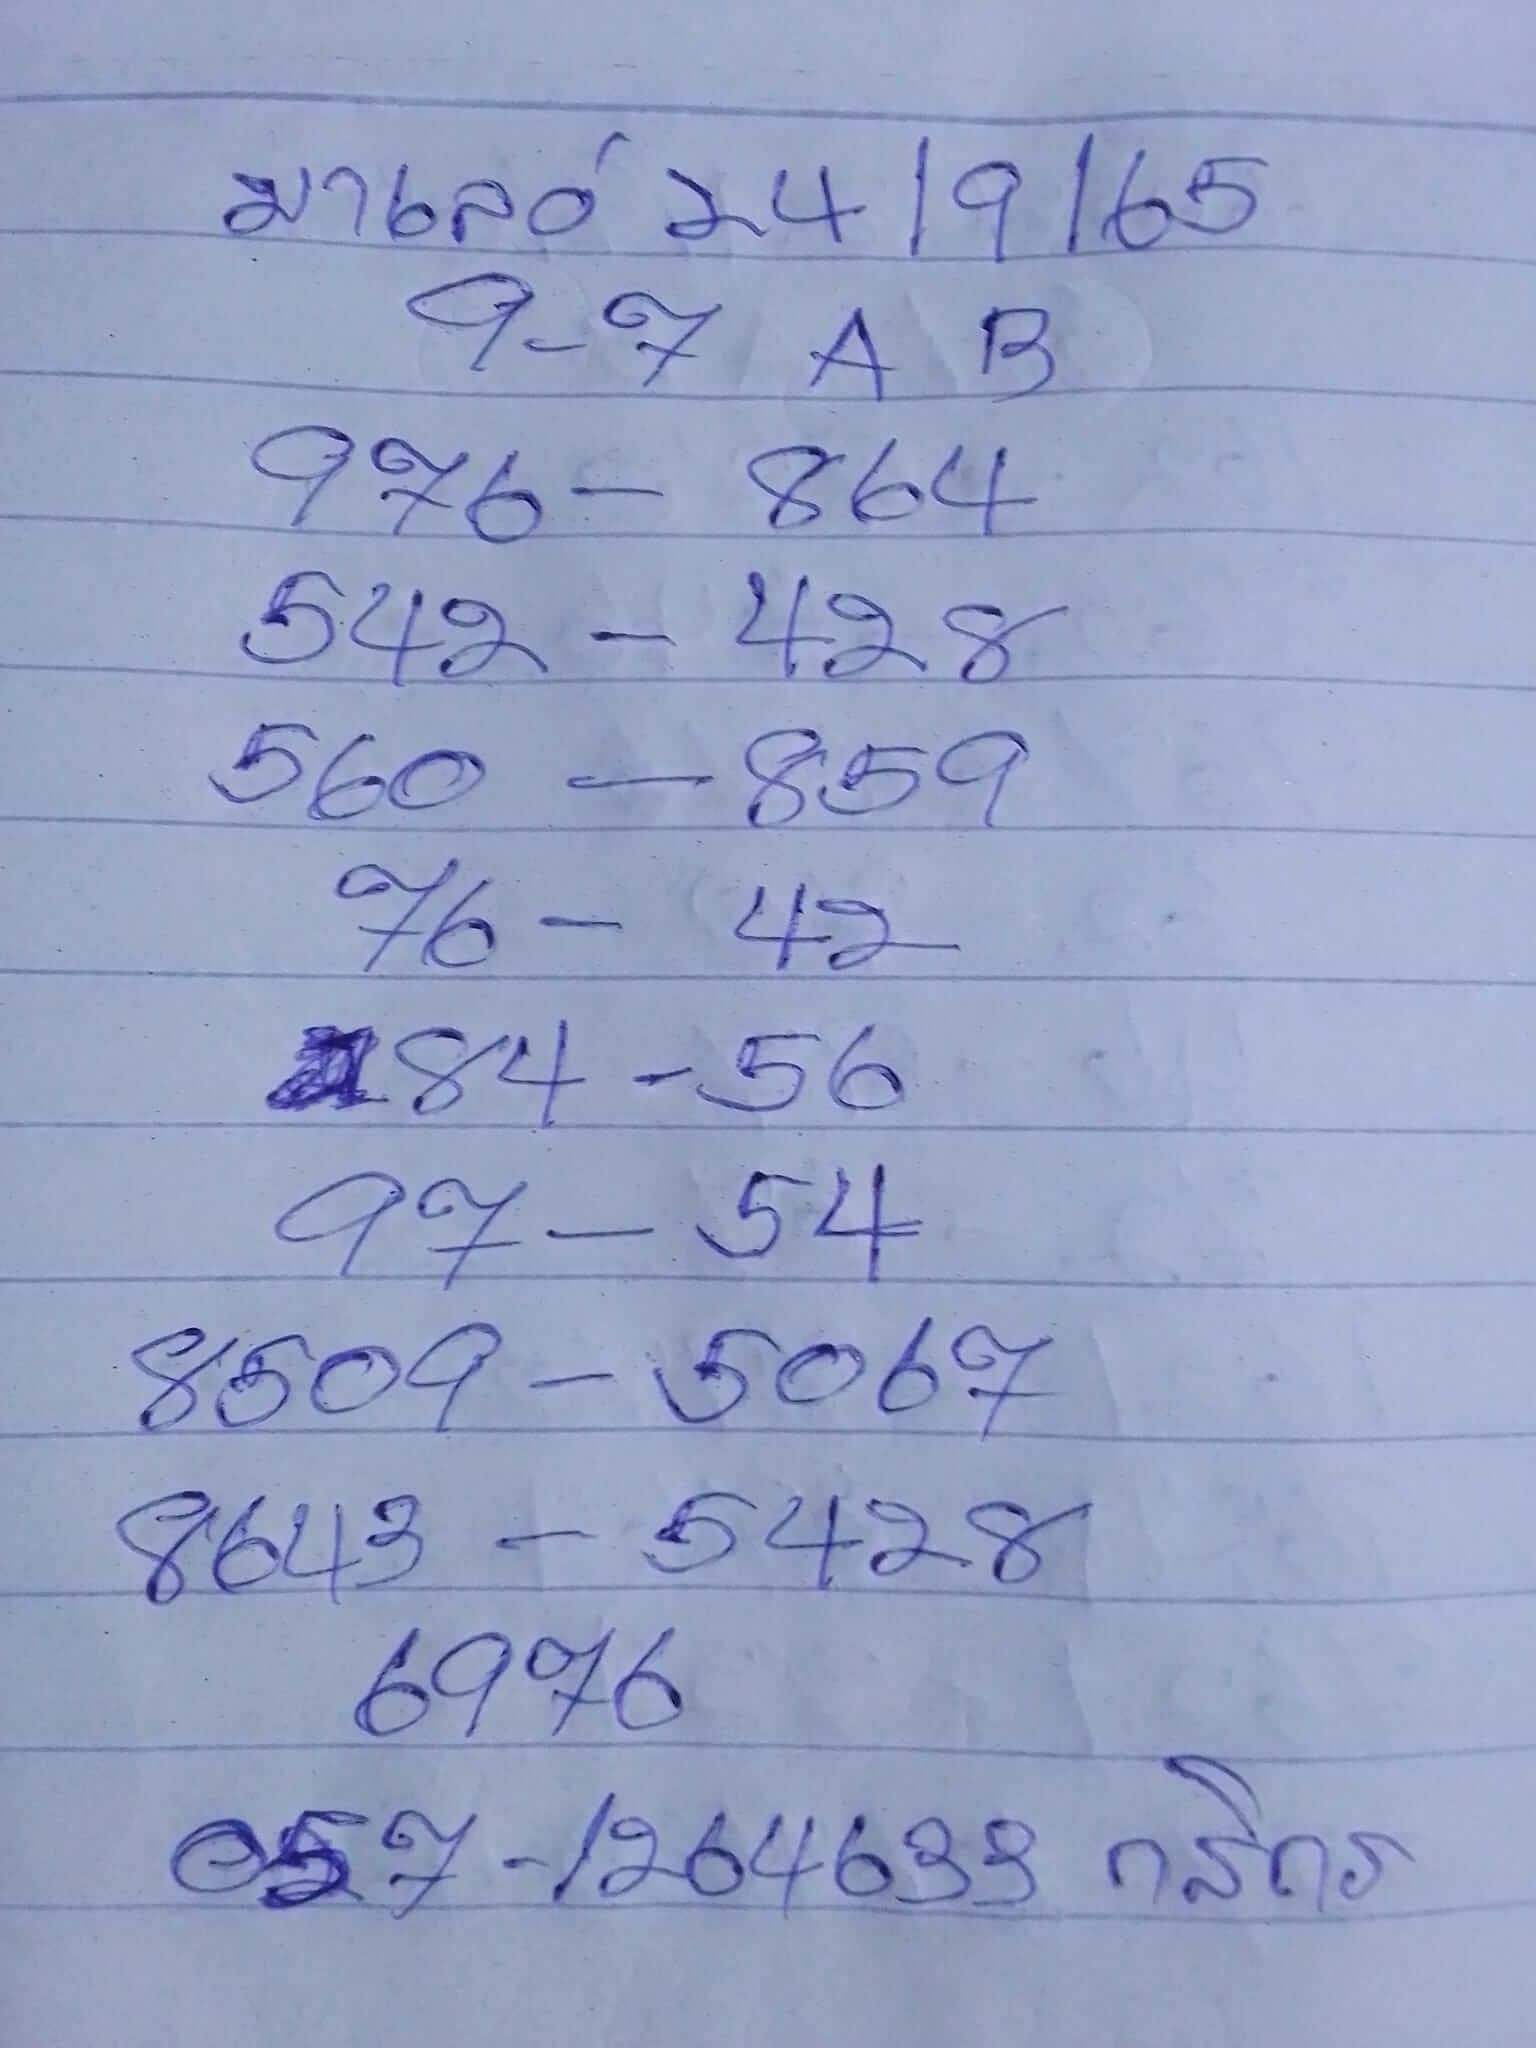 มาเลย์ 24/9/65
9-7 A B
976 - 864
542 - 428
560 - 859
76 - 42
84 - 56
97 - 54
8509 - 5067
8643 - 5428
6976
057-1264633 กสิกร